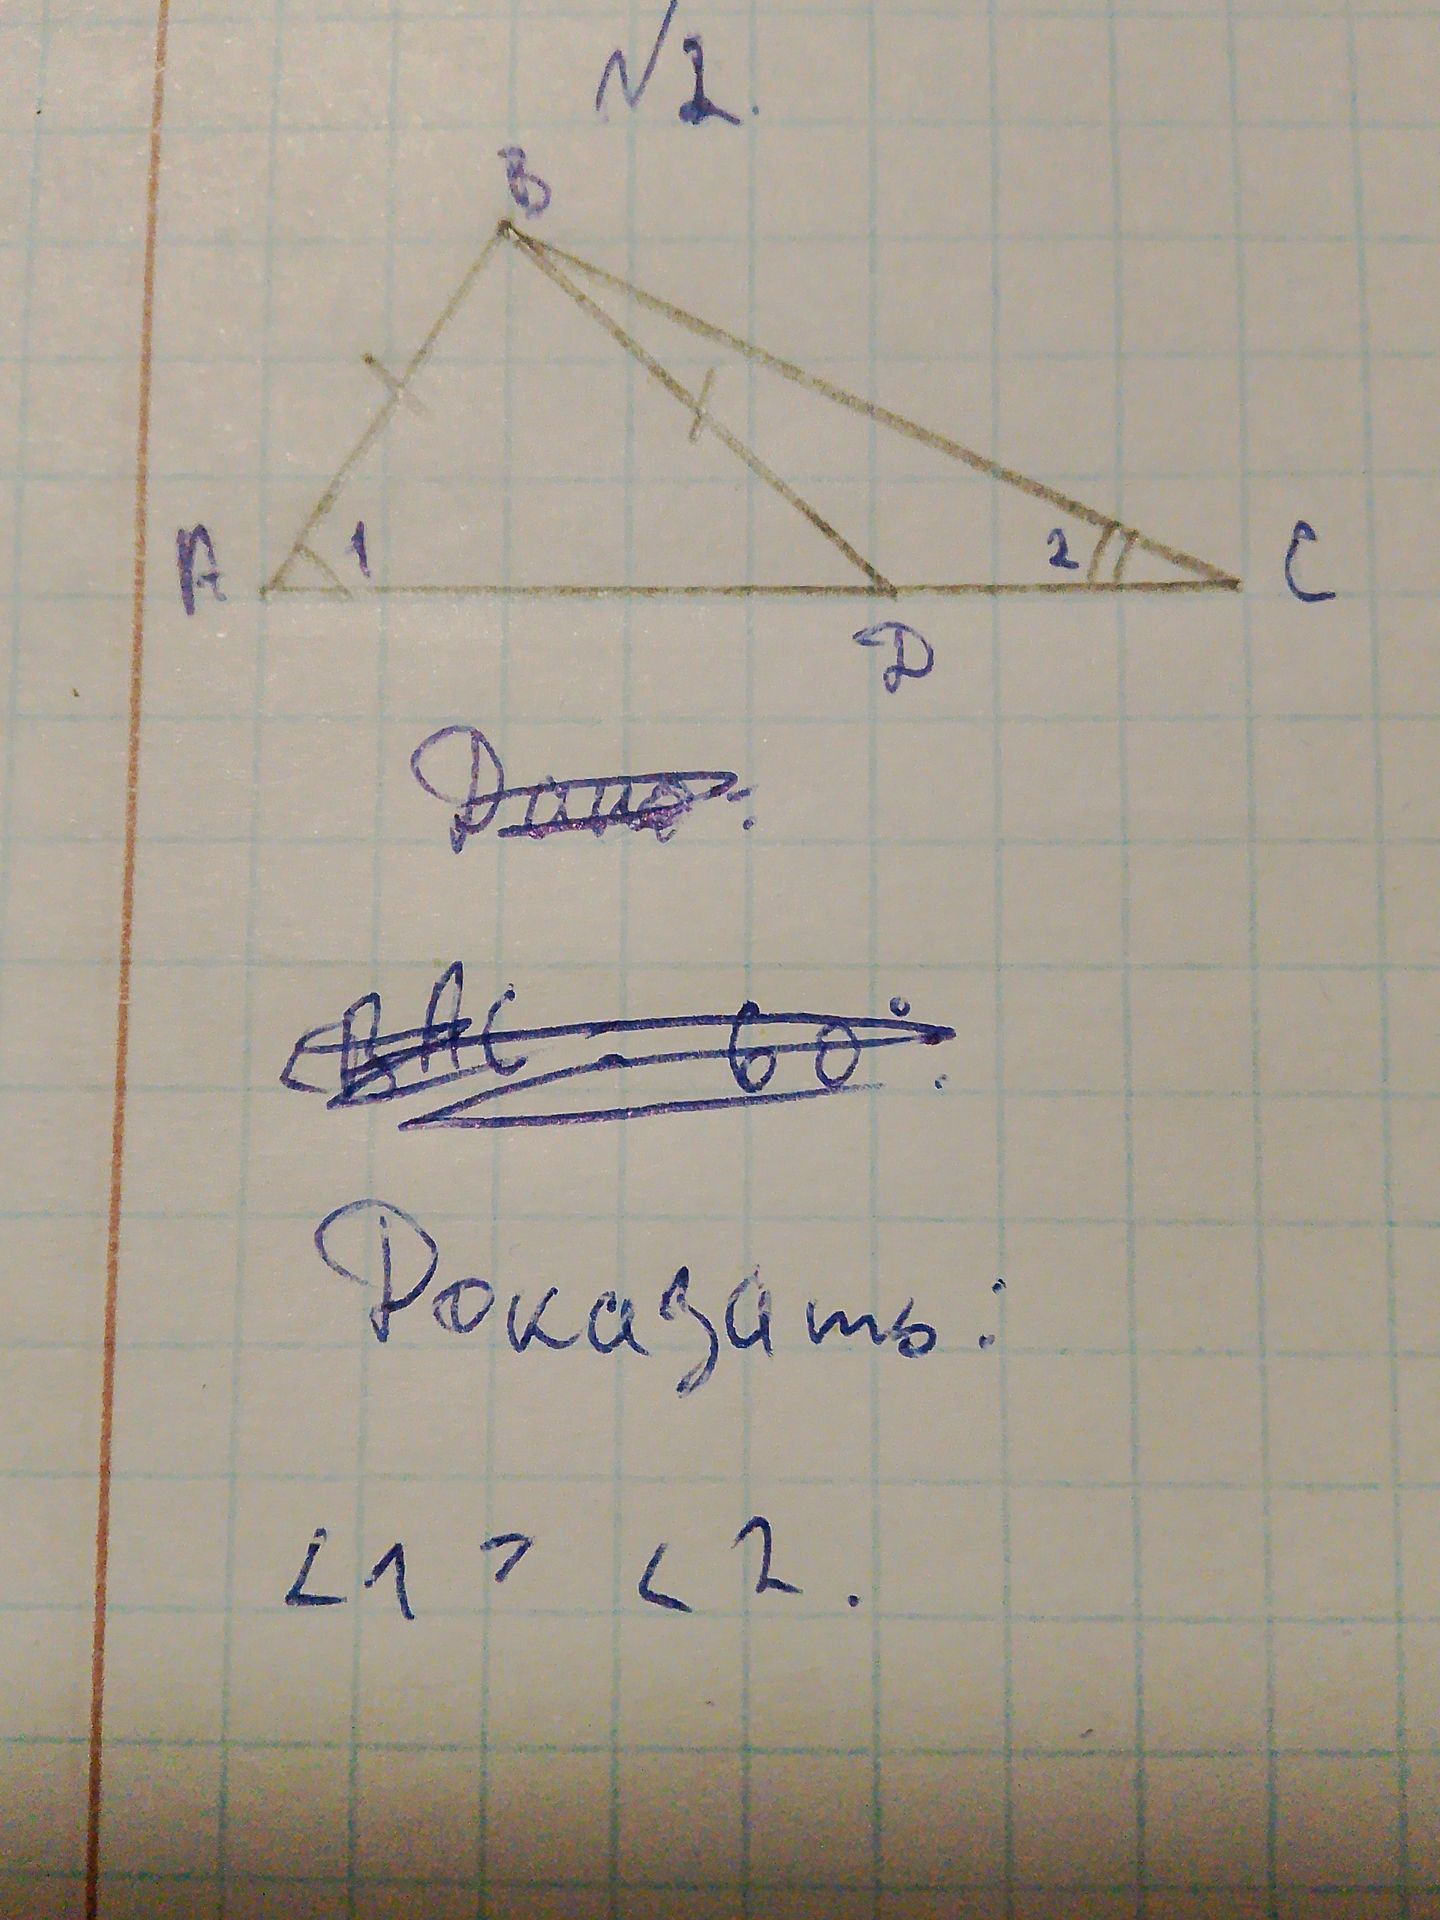 №2.
B
A 1 2 C
D
Дано:
<BAC = 60°.
Доказать:
<1 > <2.